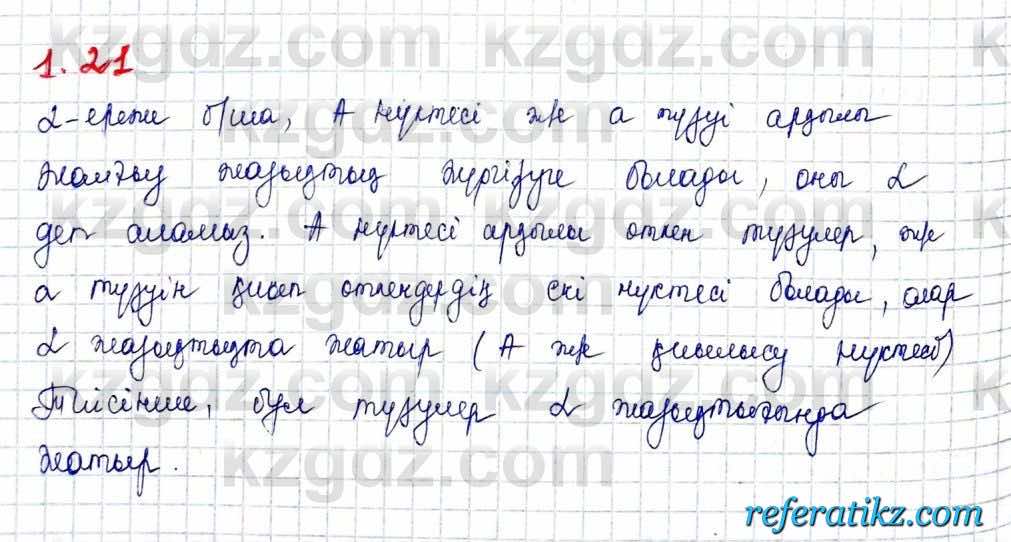 kzgdz.com kzgdz.com
1.21
2-ереже б/ша, А нүктесі ж/е а түзуі арқылы
жалғыз жазықтық жүргізуге болады, оны α
деп аламыз. А нүктесі арқылы өткен түзулер, ж/е
а түзуін қиып өткендердің екі нүктесі болады, олар
α жазықтықта жатыр (А ж/е қиылысу нүктесі)
Тиісінше, бұл түзулер α жазықтығында
жатыр.
kzgdz.com
referatikz.com